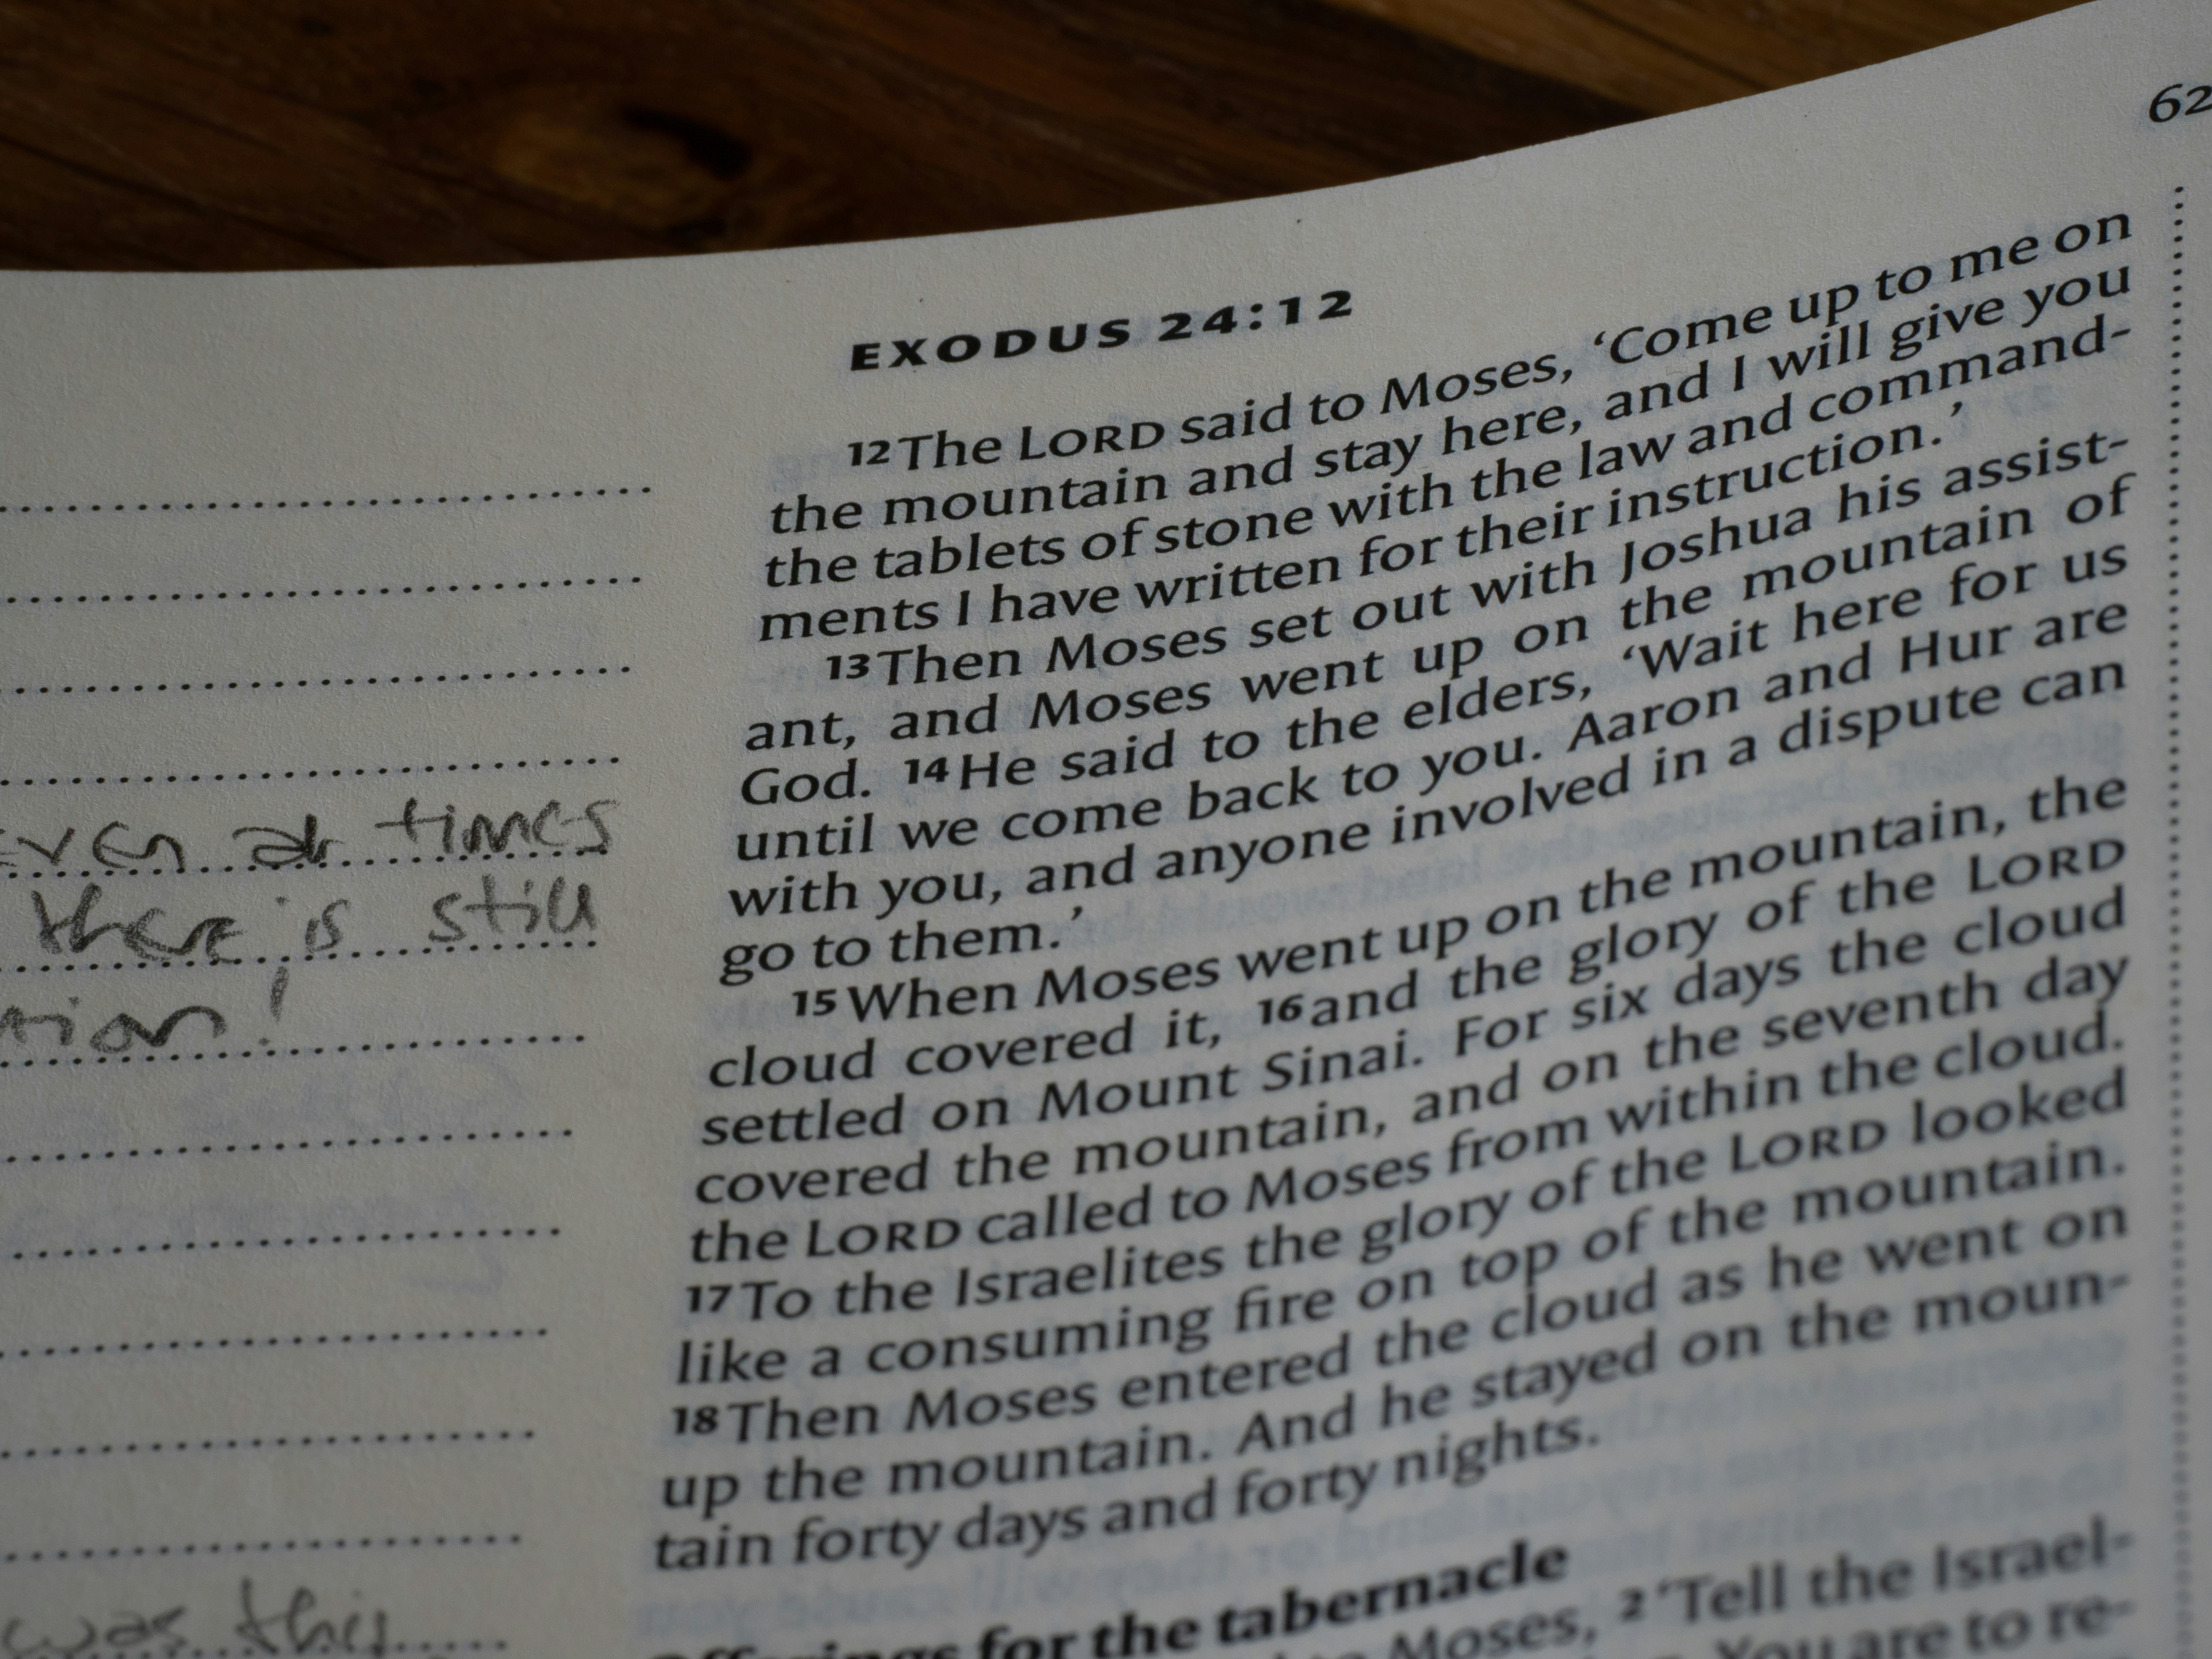 62
EXODUS 24:12
12 The LORD said to Moses, ‘Come up to me on
the mountain and stay here, and I will give you
the tablets of stone with the law and command-
ments I have written for their instruction.’
13 Then Moses set out with Joshua his assist-
ant, and Moses went up on the mountain of
God. 14 He said to the elders, ‘Wait here for us
until we come back to you. Aaron and Hur are
with you, and anyone involved in a dispute can
go to them.’
15 When Moses went up on the mountain, the
cloud covered it, 16 and the glory of the LORD
settled on Mount Sinai. For six days the cloud
covered the mountain, and on the seventh day
the LORD called to Moses from within the cloud.
17 To the Israelites the glory of the LORD looked
like a consuming fire on top of the mountain.
18 Then Moses entered the cloud as he went on
up the mountain. And he stayed on the moun-
tain forty days and forty nights.
Offerings for the tabernacle
to Moses, 2 ‘Tell the Israel-
You are to re-
even at times
there is still
tion!
was this